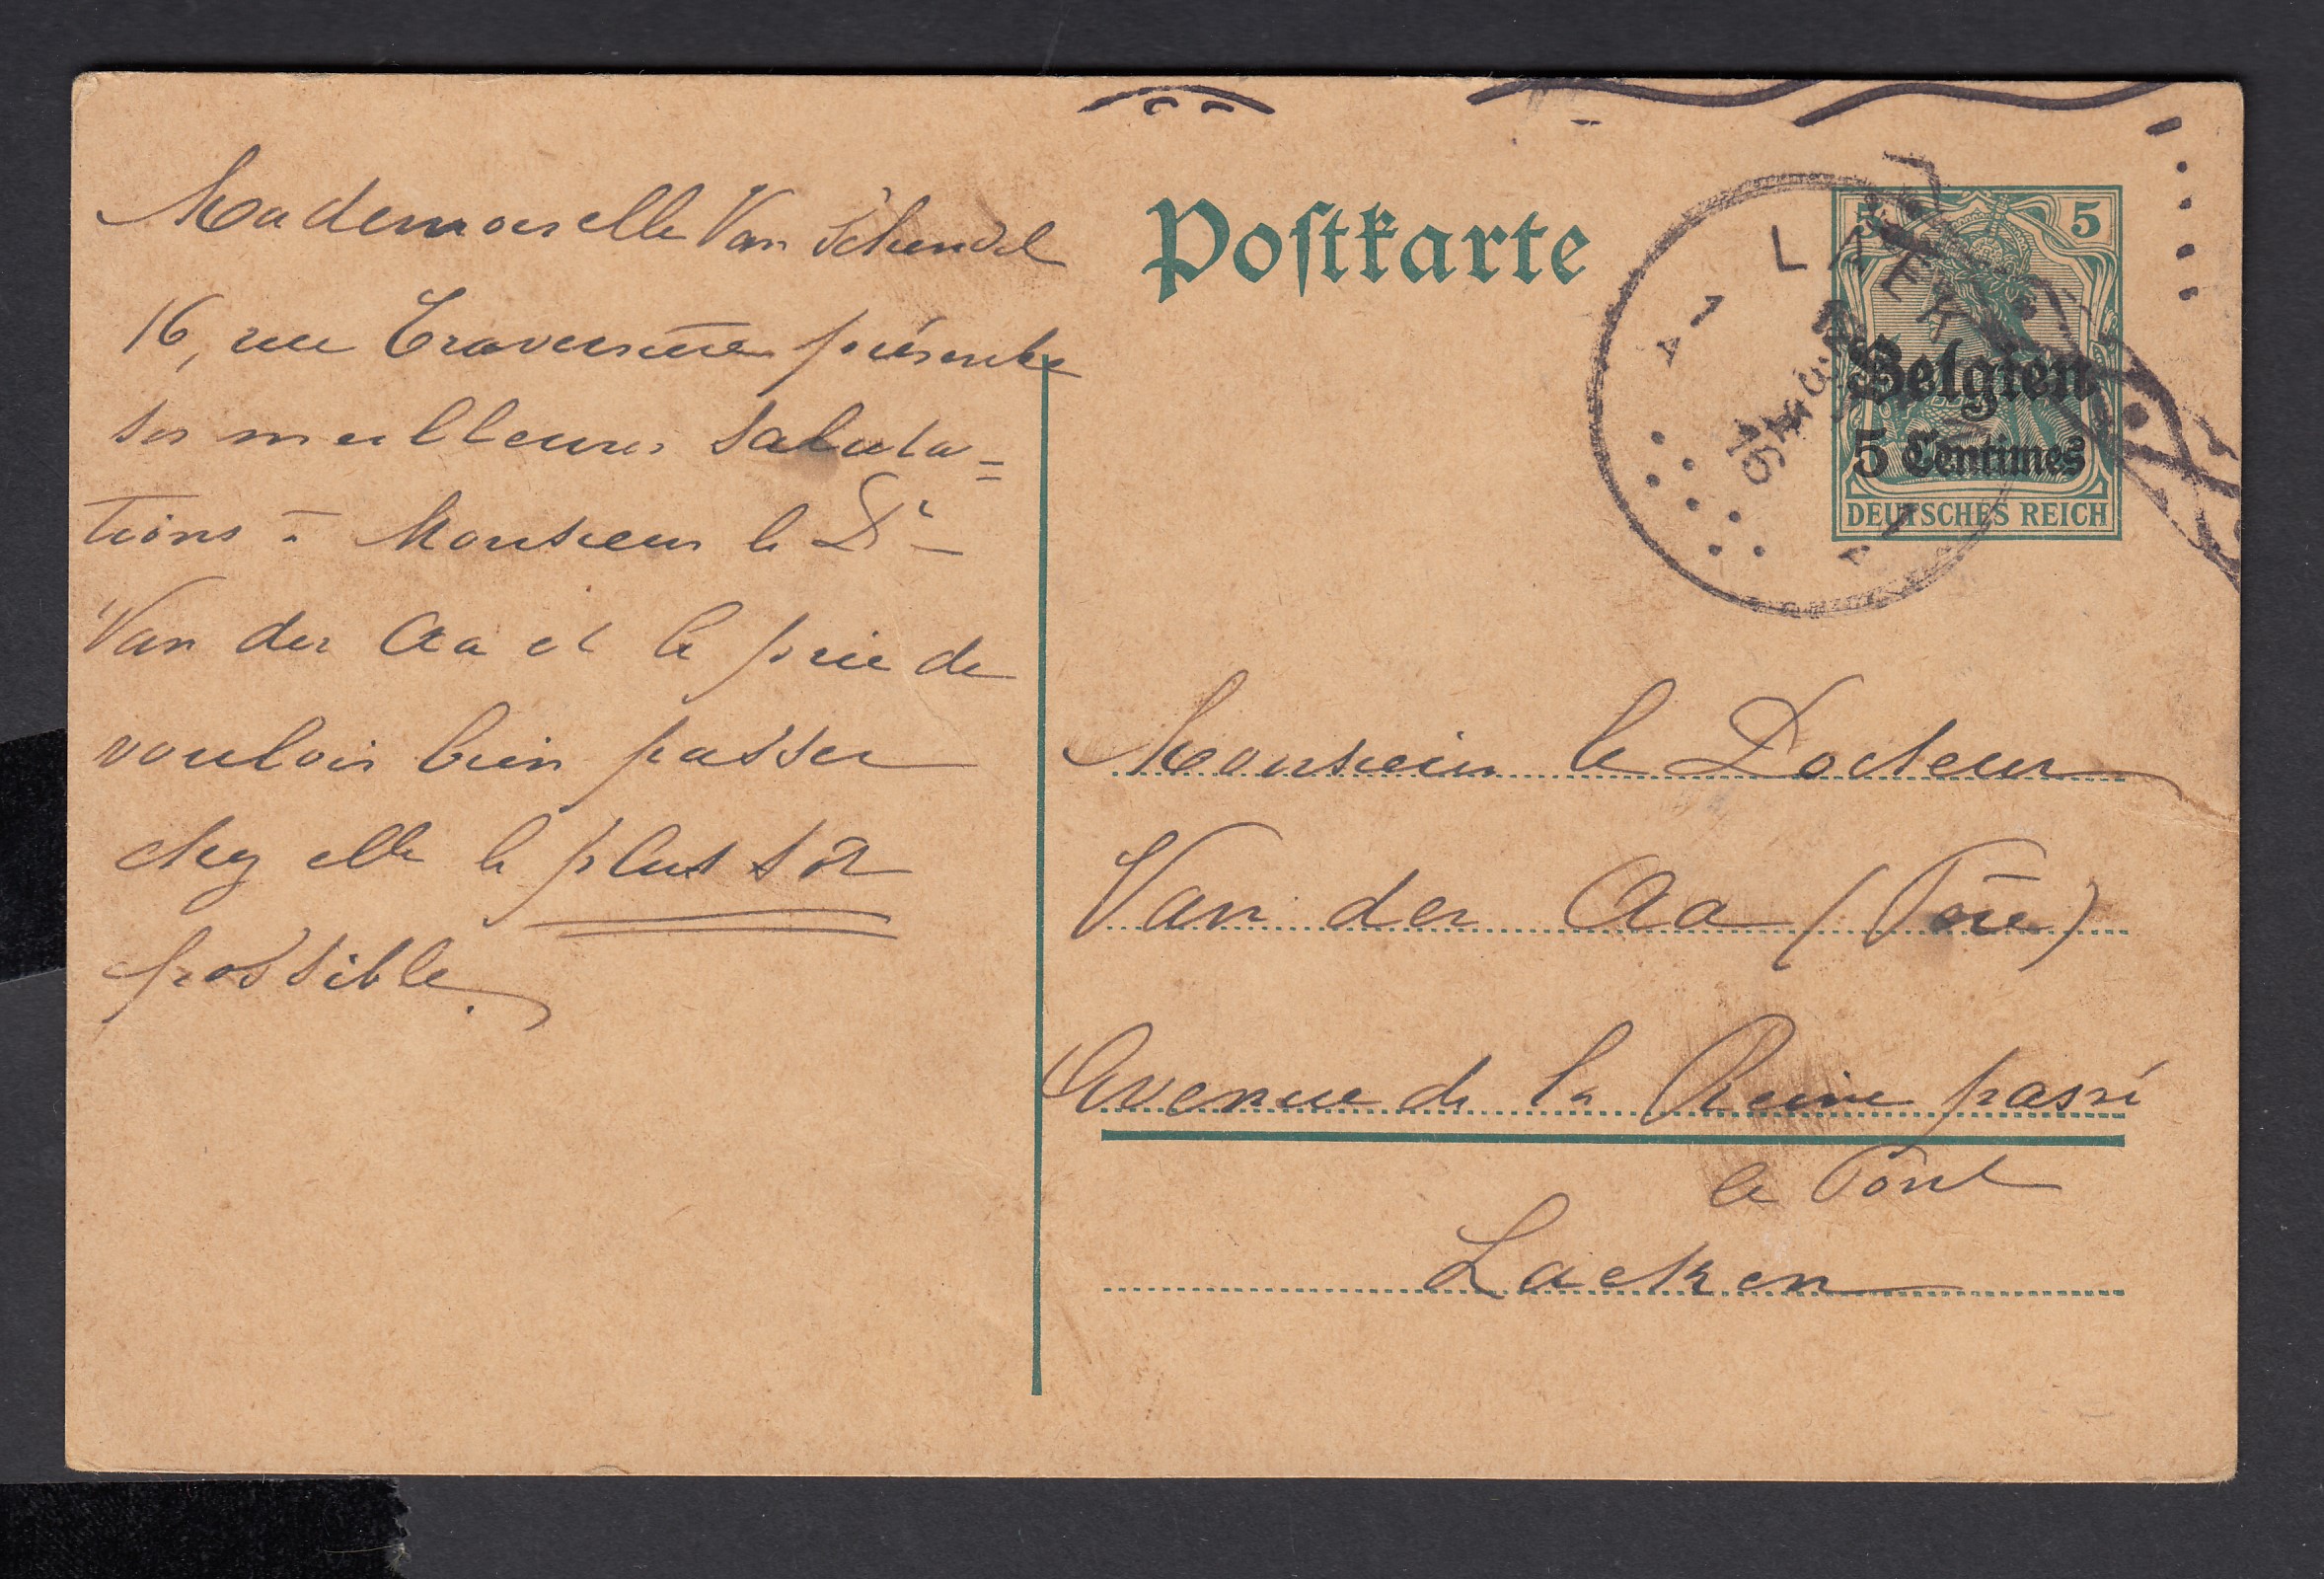 Mademoiselle Van Schendel
16, rue Traversière présente
ses meilleures saluta=
tions à Monsieur le Dr
Van der Aa et le prie de
vouloir bien passer
chez elle le plus tôt
possible.
Postkarte
5 5
Belgien
5 Centimes
DEUTSCHES REICH
LAEK
Monsieur le Docteur
Van der Aa (Père)
Avenue de la Reine passé
le Pont
Laeken